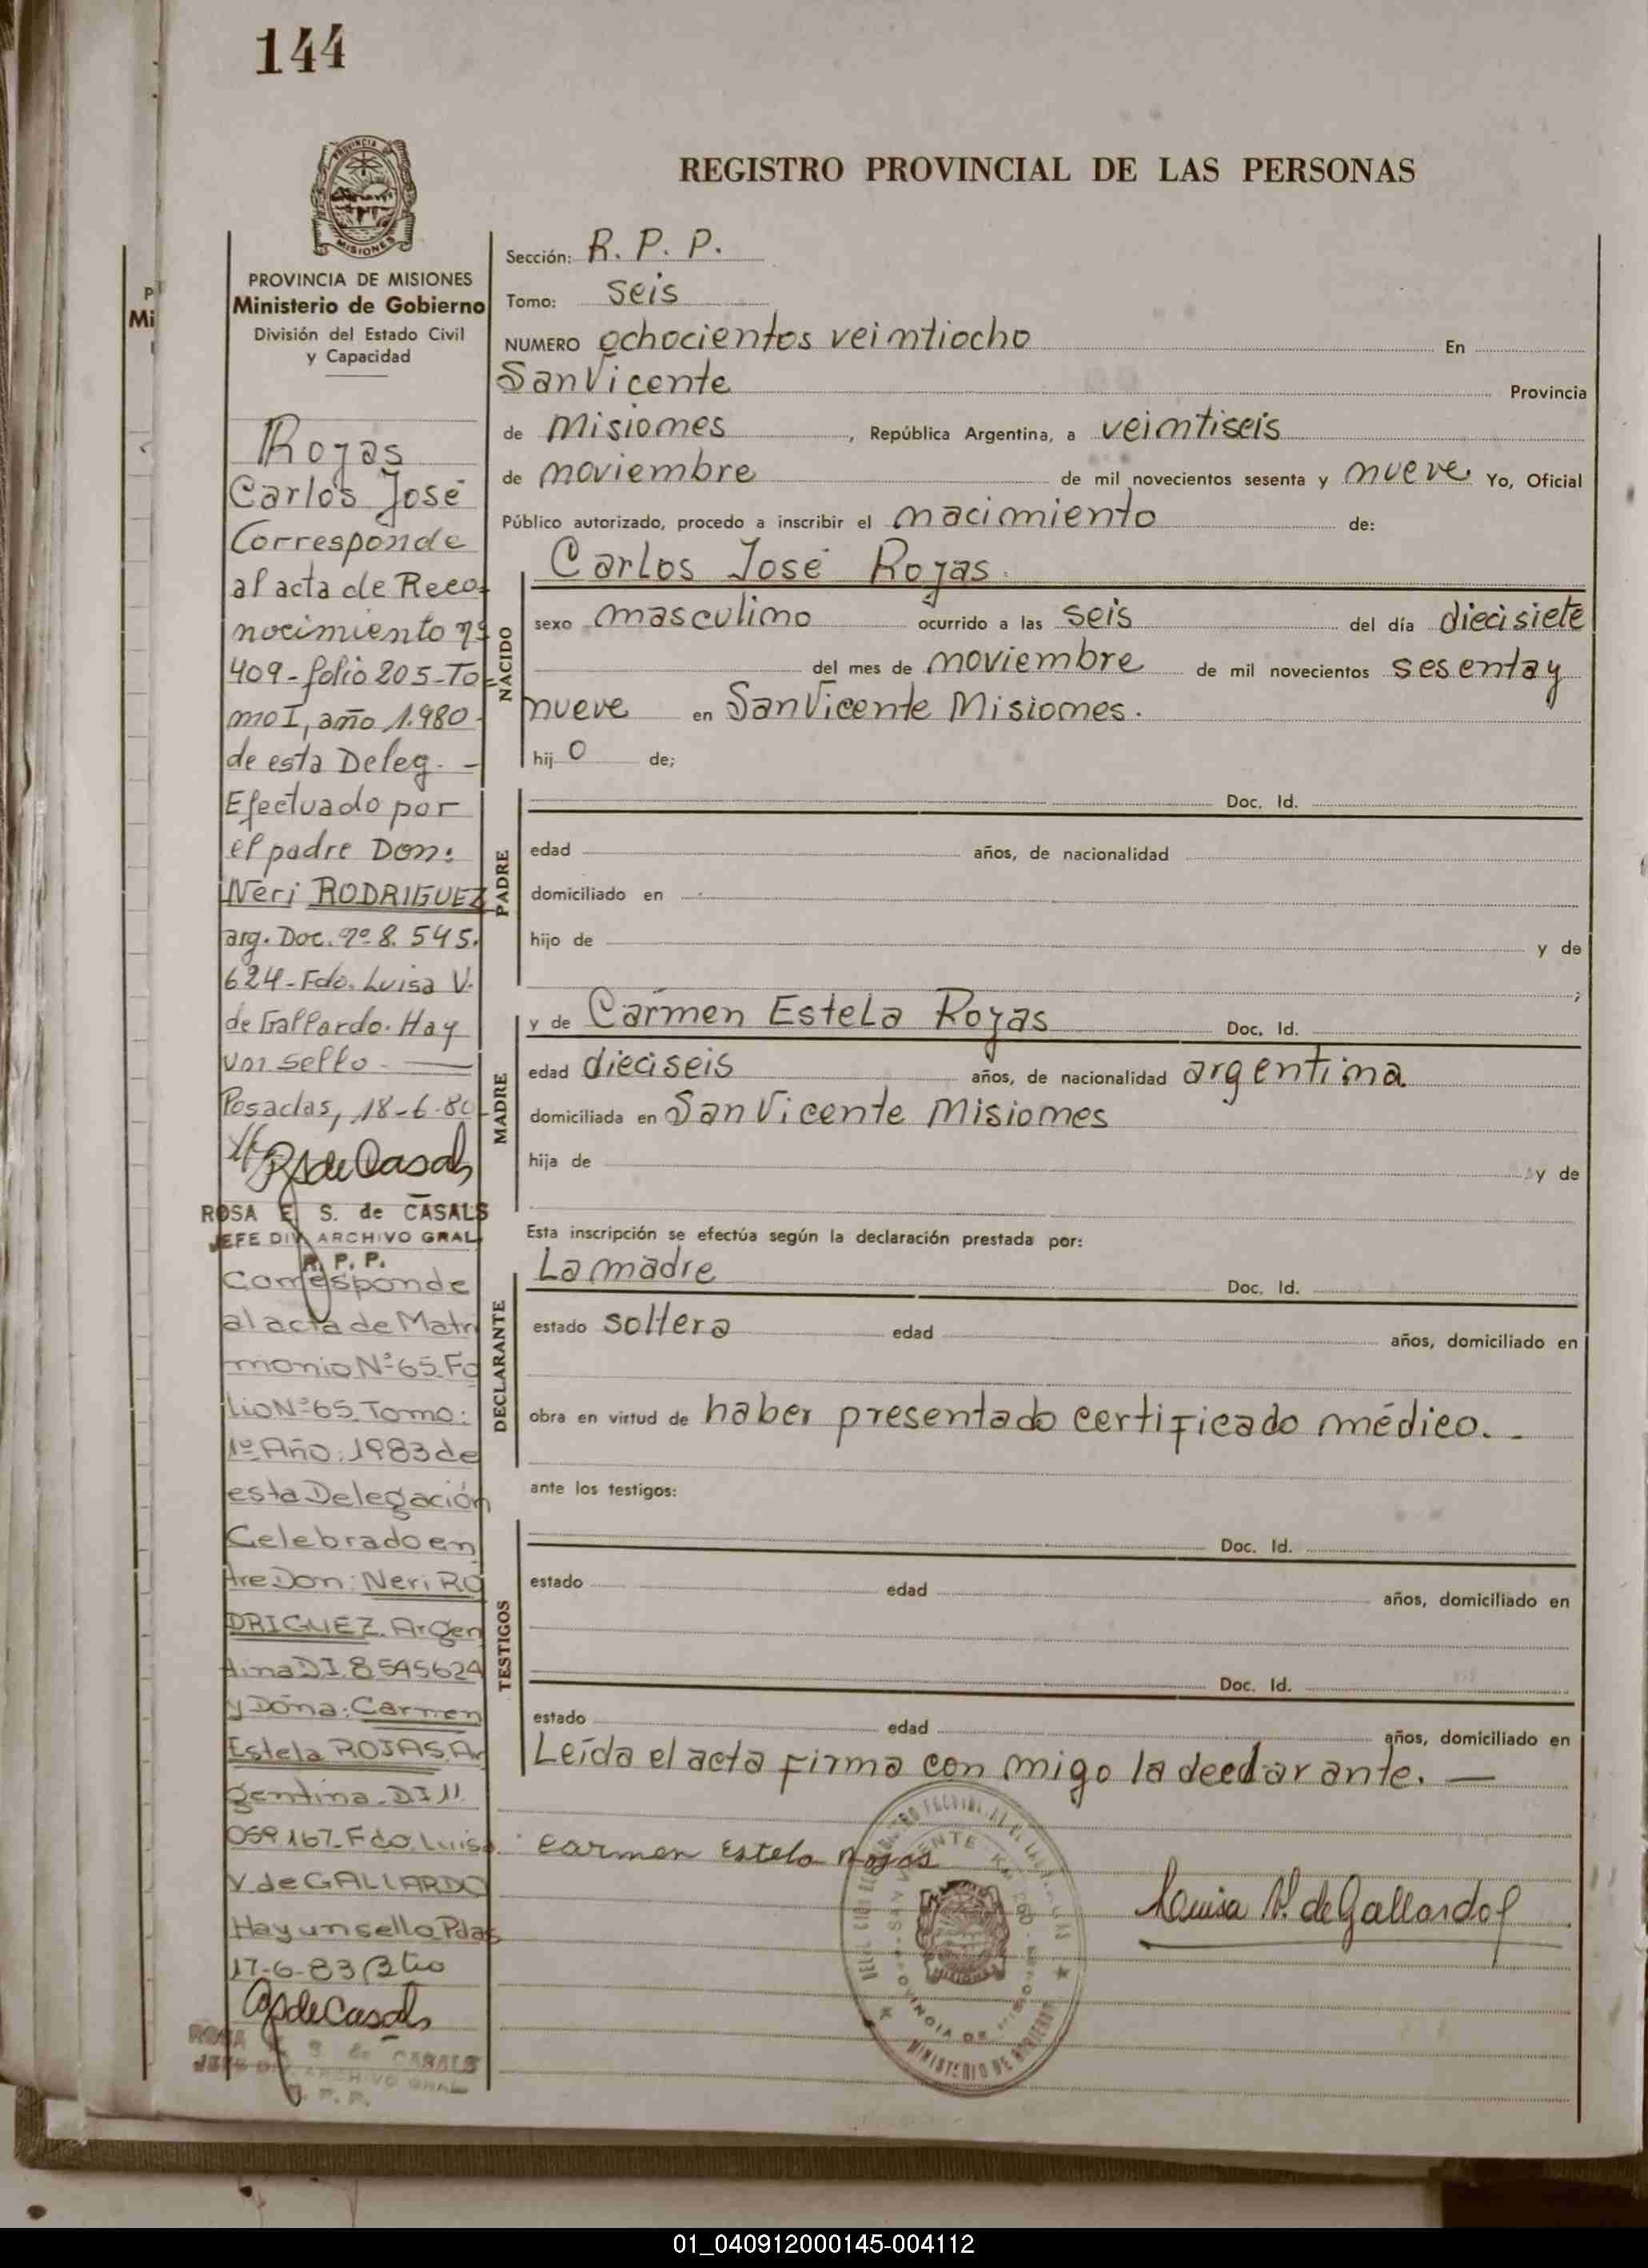 144
REGISTRO PROVINCIAL DE LAS PERSONAS
PROVINCIA DE
MISIONES
PROVINCIA DE MISIONES
Ministerio de Gobierno
División del Estado Civil
y Capacidad
Rojas
Carlos José
Corresponde
al acta de Reco-
nocimiento nº
409-folio 205-To-
mo I, año 1.980-
de esta Deleg. -
Efectuado por
el padre Don:
Neri RODRIGUEZ
arg. Doc. nº 8. 545.
624-Fdo. Luisa V.
de Gallardo. Hay
un sello -
Posadas, 18-6-80
RSdeCasals
ROSA E. S. de CASALS
JEFE DIV. ARCHIVO GRAL.
R. P. P.
Corresponde
al acta de Matri
monio Nº 65. Fo
lio Nº 65. Tomo:
1º Año: 1983 de
esta Delegación
Celebrado en
tre Don: Neri RO
DRIGUEZ. Argen
tina DI. 8545624
y Doña: Carmen
Estela ROJAS, Ar
gentina. DI 11.
059.167. Fdo. Luisa
V de GALLARDO
Hay un sello. Pdas
17-6-83
deCasals
ROSA E. S. de CASALS
JEFE DIV. ARCHIVO GRAL.
R. P. P.
Sección: R. P. P.
Tomo: seis
NUMERO ochocientos veintiocho En
San Vicente Provincia
de Misiones, República Argentina, a veintiseis
de noviembre de mil novecientos sesenta y nueve. Yo, Oficial
Público autorizado, procedo a inscribir el nacimiento de:
NACIDO
Carlos José Rojas.
sexo masculino ocurrido a las seis del día diecisiete
del mes de noviembre de mil novecientos sesenta y
nueve en San Vicente Misiones.
hij o de;
PADRE
Doc. Id.
edad años, de nacionalidad
domiciliado en
hijo de y de
;
MADRE
y de Carmen Estela Rojas Doc. Id.
edad dieciseis años, de nacionalidad argentina
domiciliada en San Vicente Misiones
hija de y de
Esta inscripción se efectúa según la declaración prestada por:
DECLARANTE
La madre Doc. Id.
estado soltera edad años, domiciliado en
obra en virtud de haber presentado certificado médico. -
ante los testigos:
TESTIGOS
Doc. Id.
estado edad años, domiciliado en
Doc. Id.
estado edad años, domiciliado en
Leída el acta firma con migo la declarante. —
Carmen Estela Rojas
Luisa V. de Gallardo
MINISTERIO DE GOBIERNO
PROVINCIA DE MISIONES
MISIONES
P
Mi
01_040912000145-004112